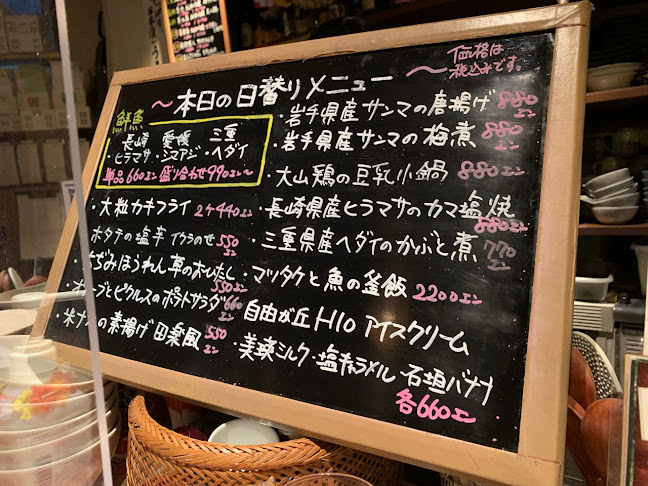 ～本日の日替りメニュー～
価格は
税込みです。
鮮魚
長崎 愛媛 三重
・ヒラマサ・シマアジ・ヘダイ
単品660エン 盛り合わせ990エン～
・大粒カキフライ 2ヶ440エン
ホタテの塩辛 イクラのせ 550エン
ちぢみほうれん草のおひたし
550エン
とピクルスのポテトサラダ 660エン
・米ナスの素揚げ田楽風 550エン
・岩手県産サンマの唐揚げ 880エン
・岩手県産サンマの梅煮 880エン
・大山鶏の豆乳小鍋 880エン
・長崎県産ヒラマサのカマ塩焼
880エン
・三重県産ヘダイのかぶと煮 770エン
・マツタケと魚の釜飯 2200エン
自由が丘 H10 アイスクリーム
・美瑛ミルク・塩キャラメル 石垣バナナ
各660エン